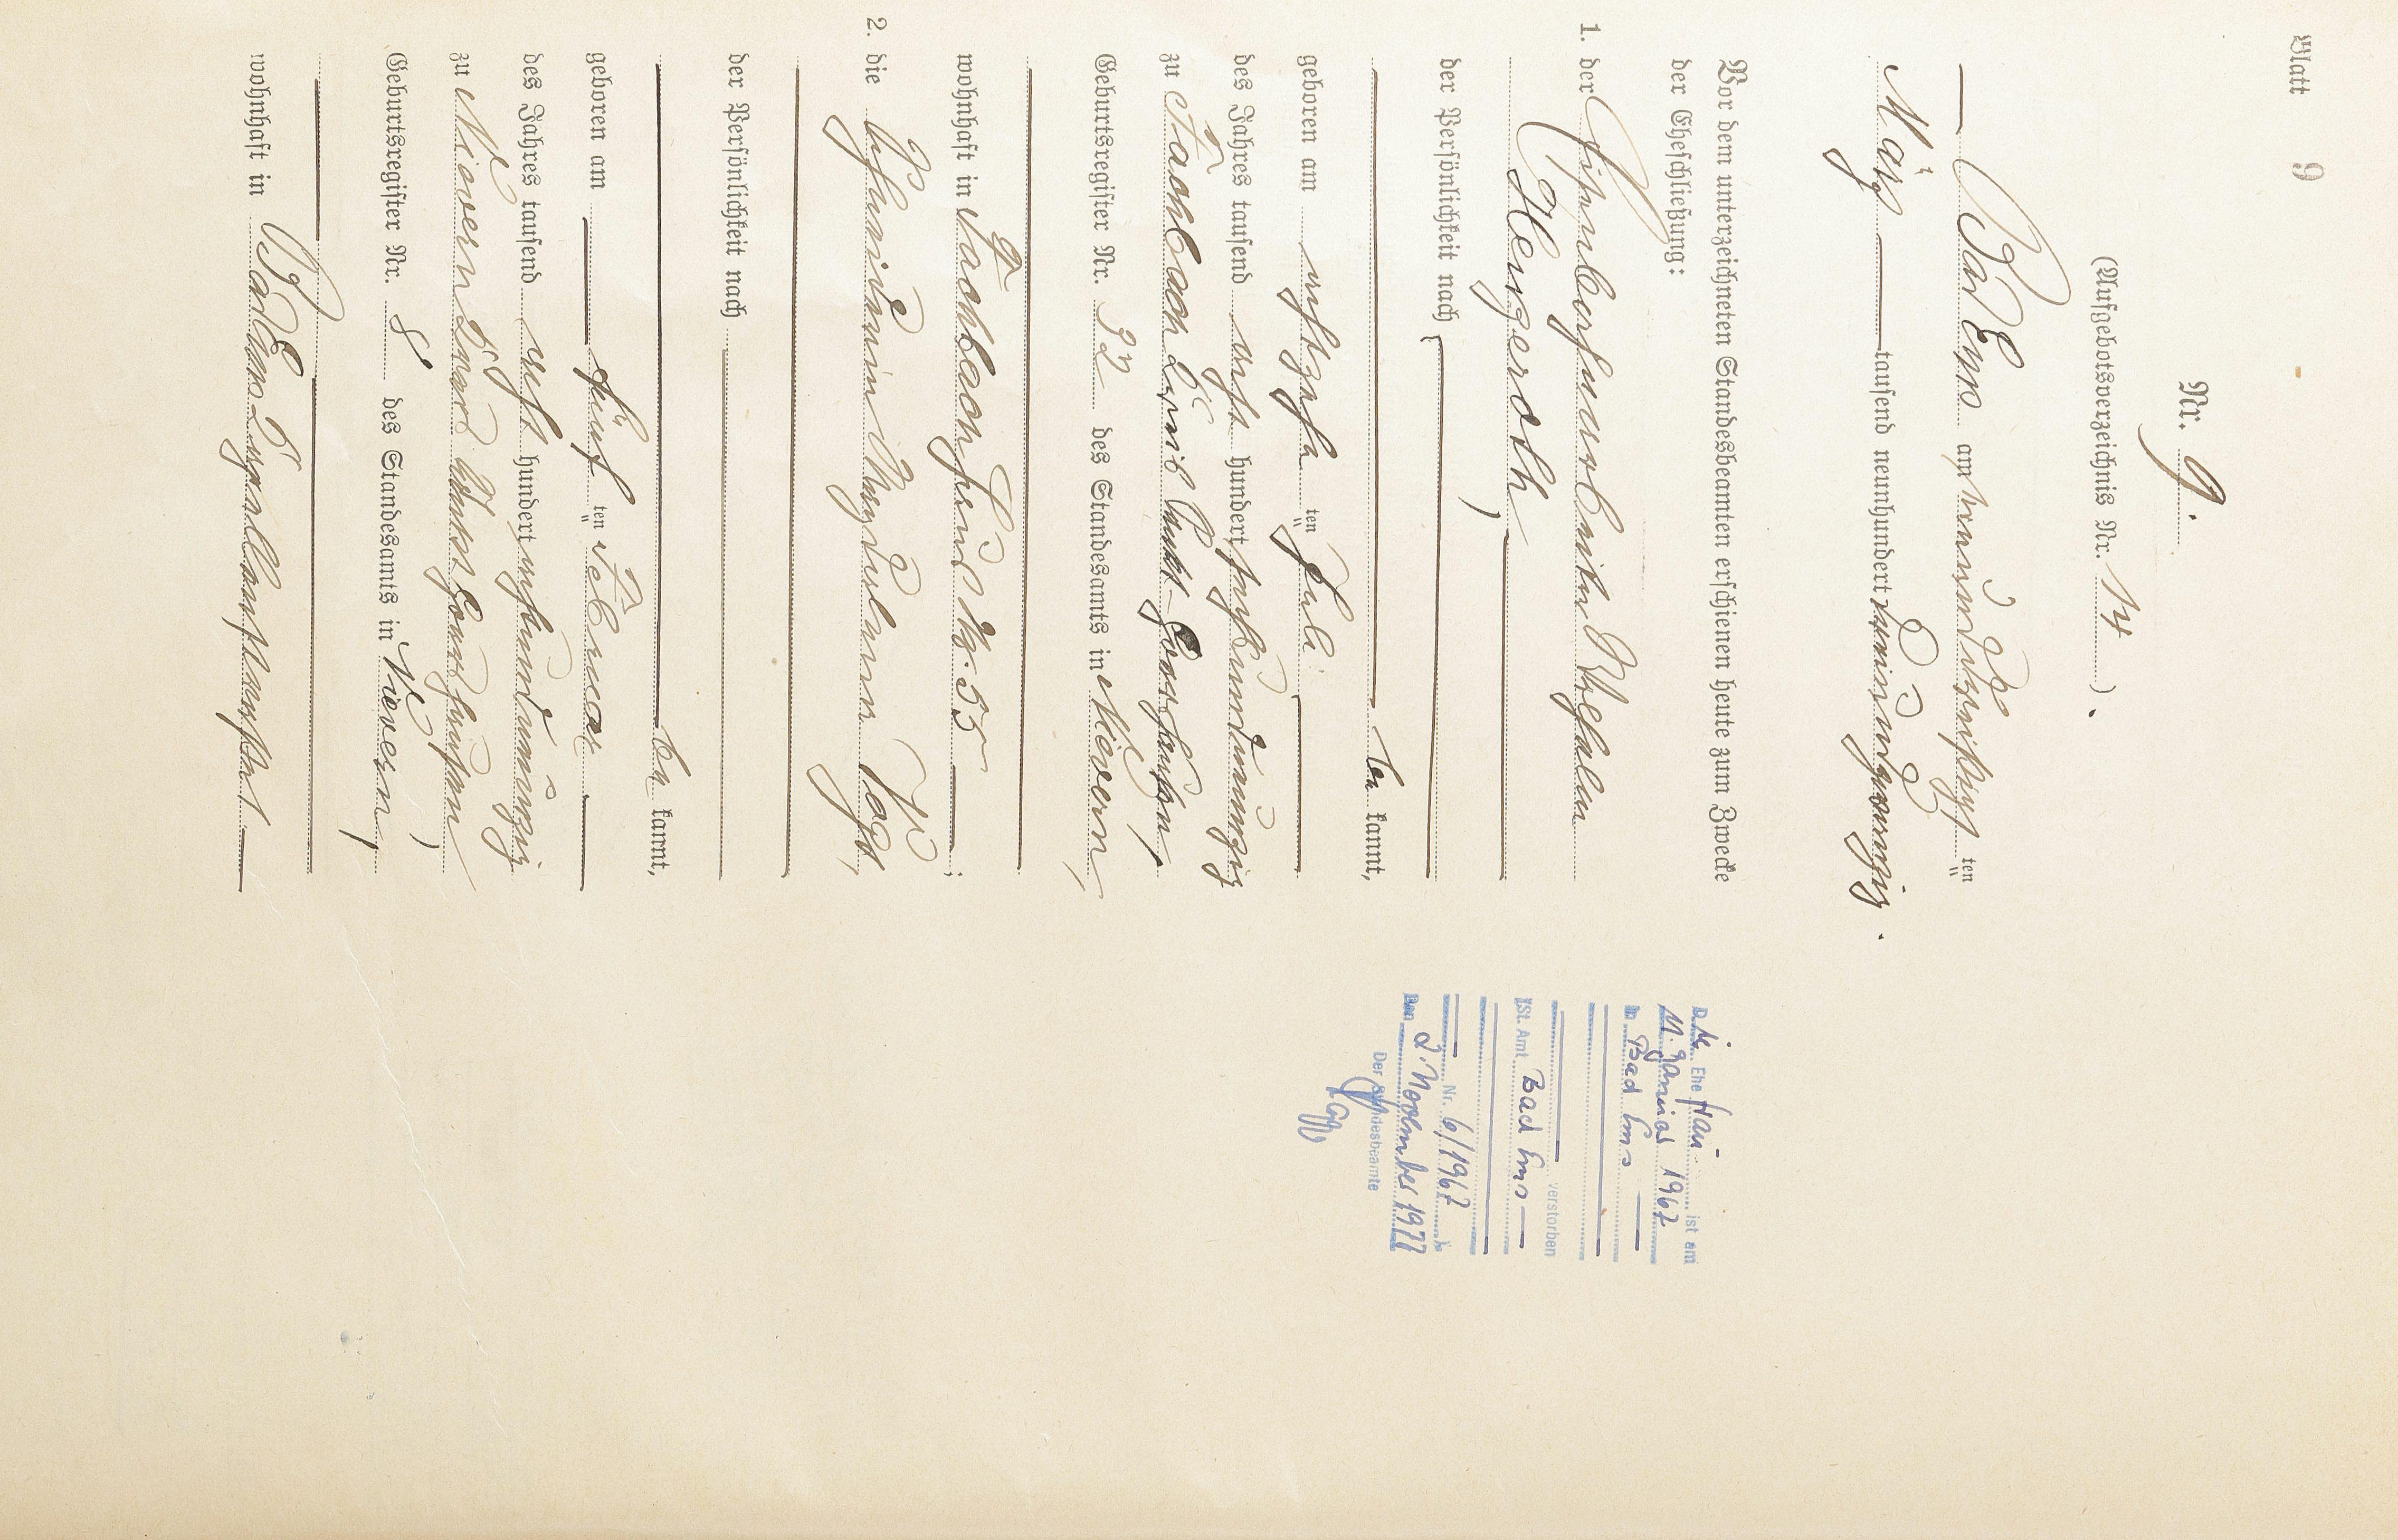 Blatt 9
Nr. 9.
(Aufgebotsverzeichnis Nr. 14).
Bad Ems am einunddreißigsten
März tausend neunhundert zweiundzwanzig.
Vor dem unterzeichneten Standesbeamten erschienen heute zum Zwecke
der Eheschließung:
1. der Eisenbahnarbeiter Wilhelm
Hergeroth,
der Persönlichkeit nach
be kannt,
geboren am achtzehn ten Juli
des Jahres tausend acht hundert sechsundneunzig
zu Fachbach Unterlahnkreis,
Geburtsregister Nr. 32 des Standesamts in Nievern,
wohnhaft in Fachbach Haus Nr. 55;
2. die
Vogt,
der Persönlichkeit nach
be kannt,
geboren am fünf ten Februar
des Jahres tausend acht hundert achtundneunzig
zu Nievern
Geburtsregister Nr. 8 des Standesamts in Nievern,
wohnhaft in Bad Ems
Die Ehefrau ist am
11. Januar 1967
in Bad Ems
verstorben
(St. Amt Bad Ems
Nr. 6/1967)
Den 2. November 1977
Der Standesbeamte